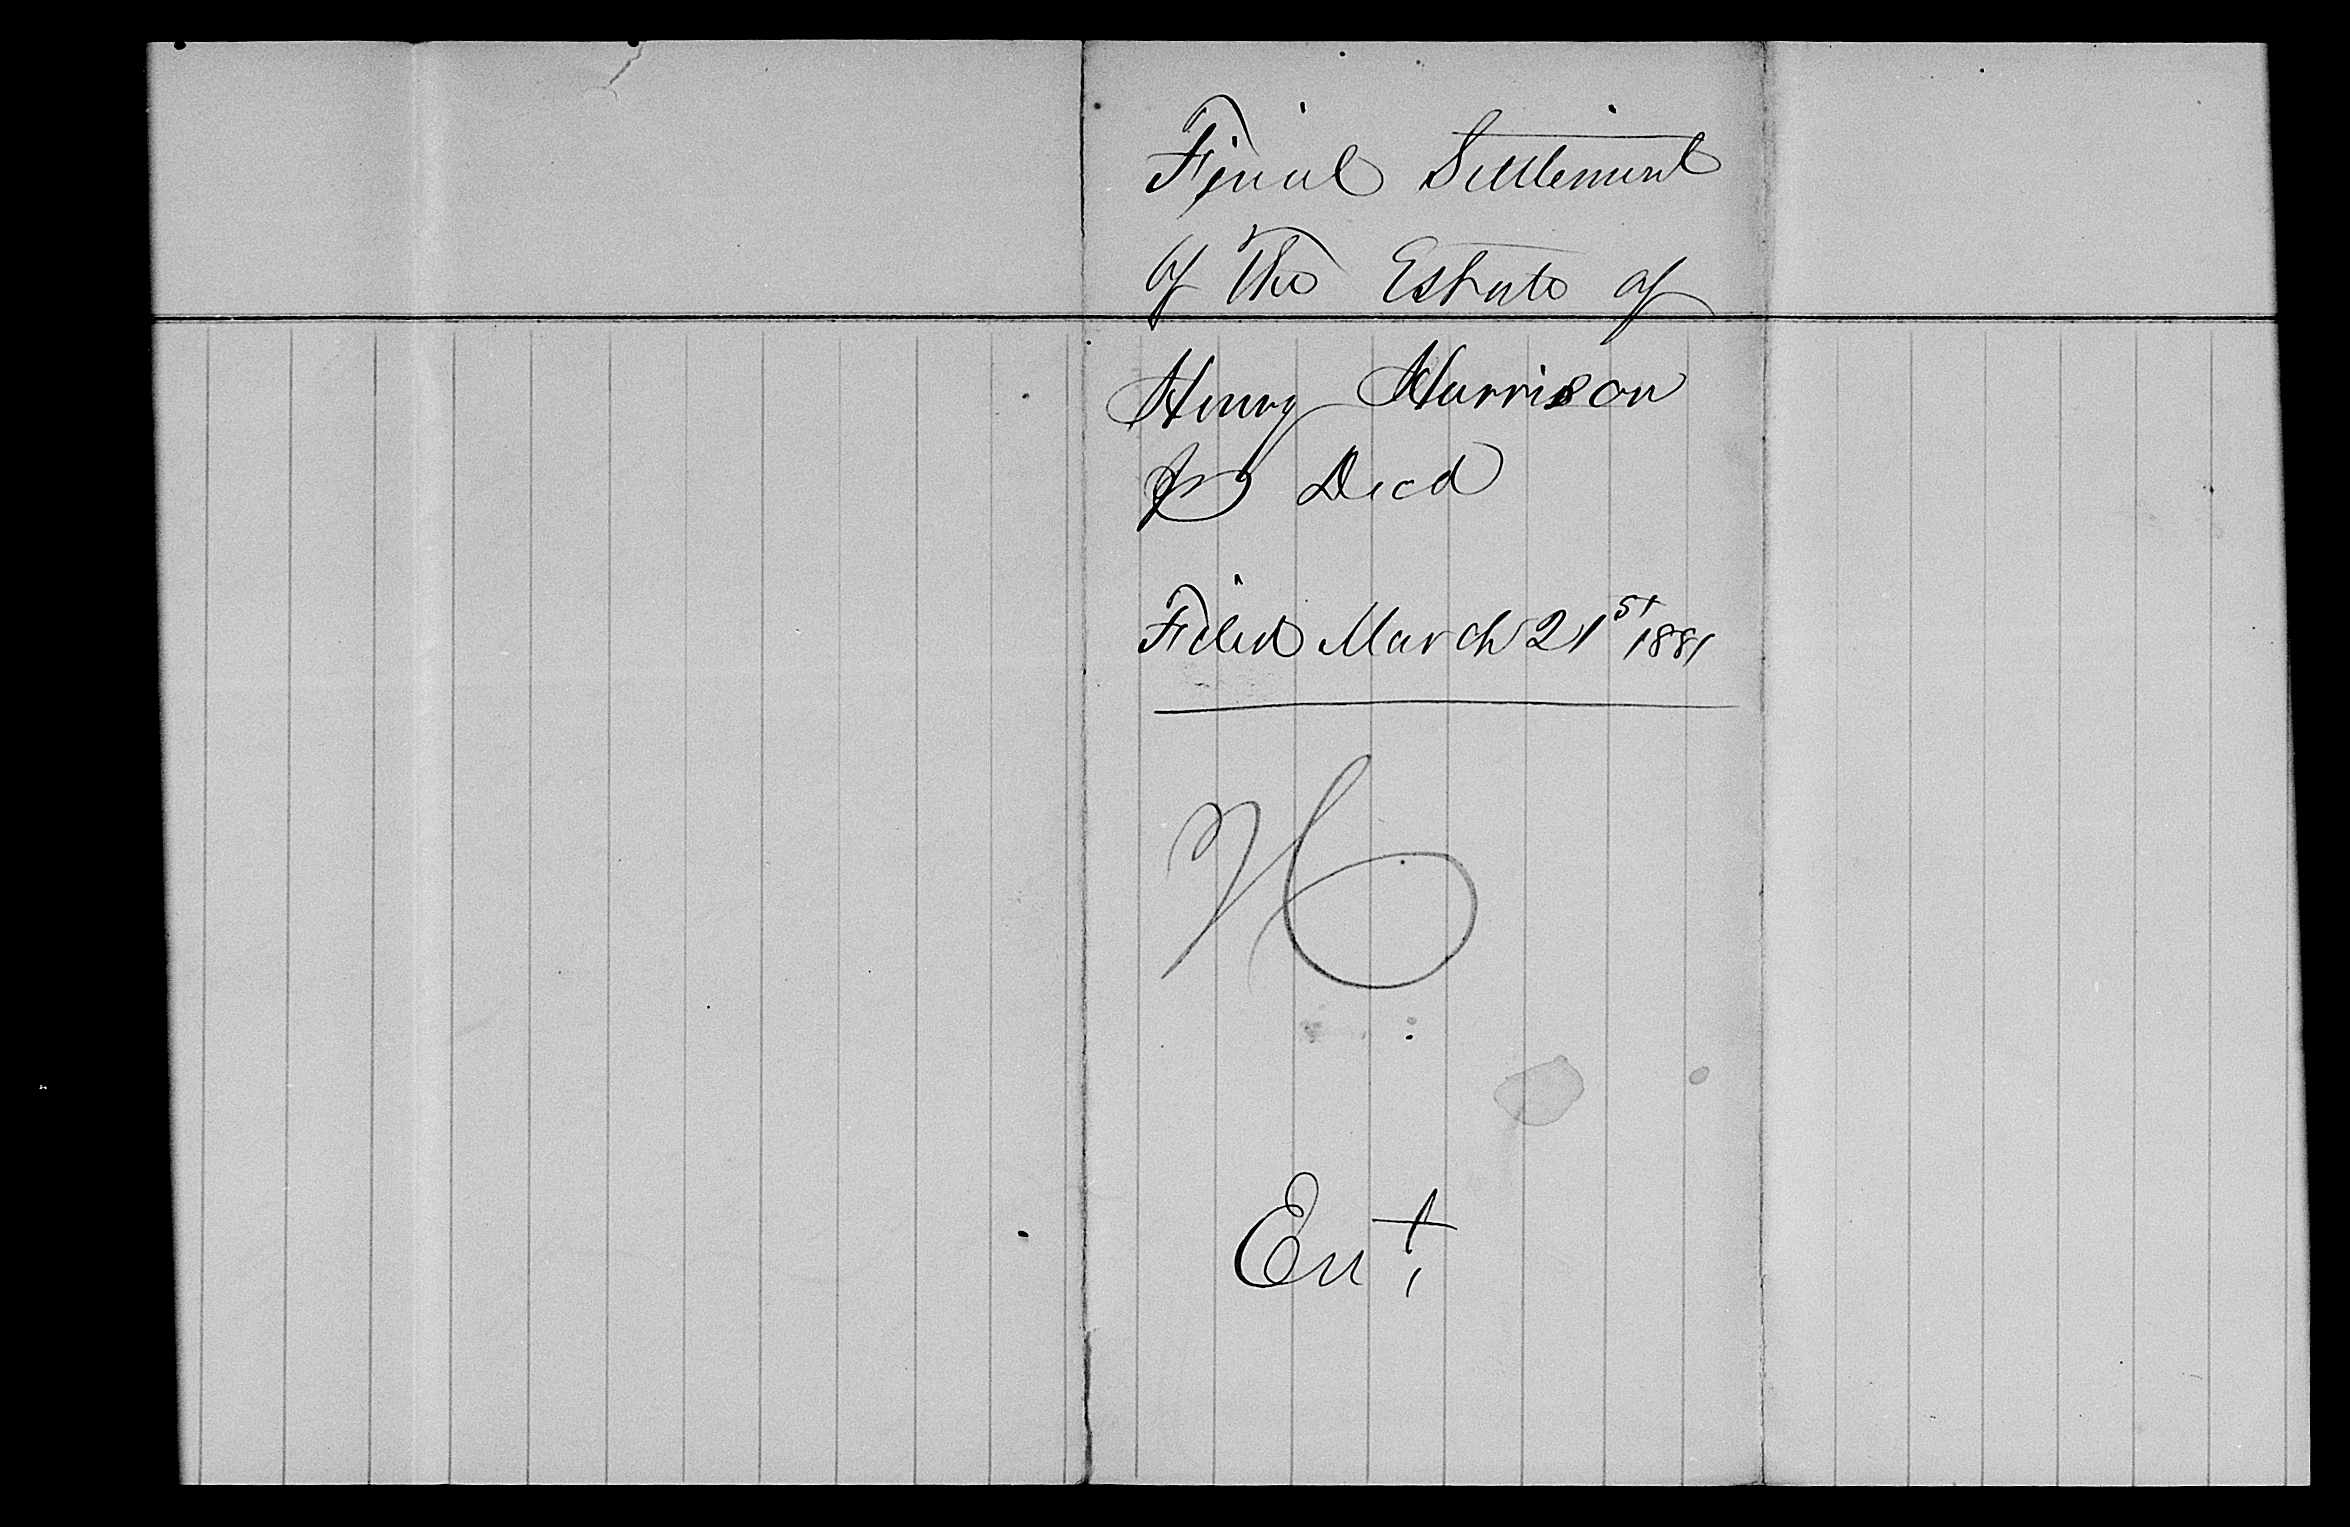 Final Settlement
of The Estate of
Henry Harrison
Jr Decd
Filed March 21st 1881
H
Ent